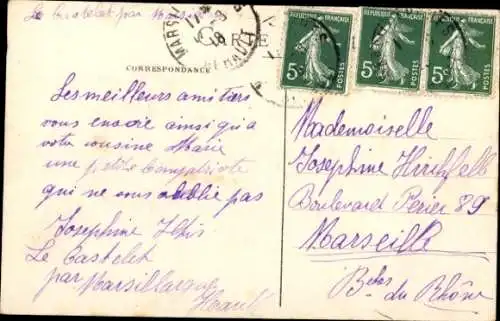 Le Castelet par Mars
MARSI
CORRESPONDANCE
REPUBLIQUE FRANÇAISE
5c POSTES
REPUBLIQUE FRANÇAISE
5c POSTES
REPUBLIQUE FRANÇAISE
5c POSTES
Les meilleurs amitiés
vous envoie ainsi qu'à
votre cousine Marie
une petite Compatriote
qui ne vous oublie pas
Josephine
Le Castelet
par Marsillargues
Hault
Mademoiselle
Josephine Hirchfell
Boulevard Perier 89
Marseille
Bches du Rhône